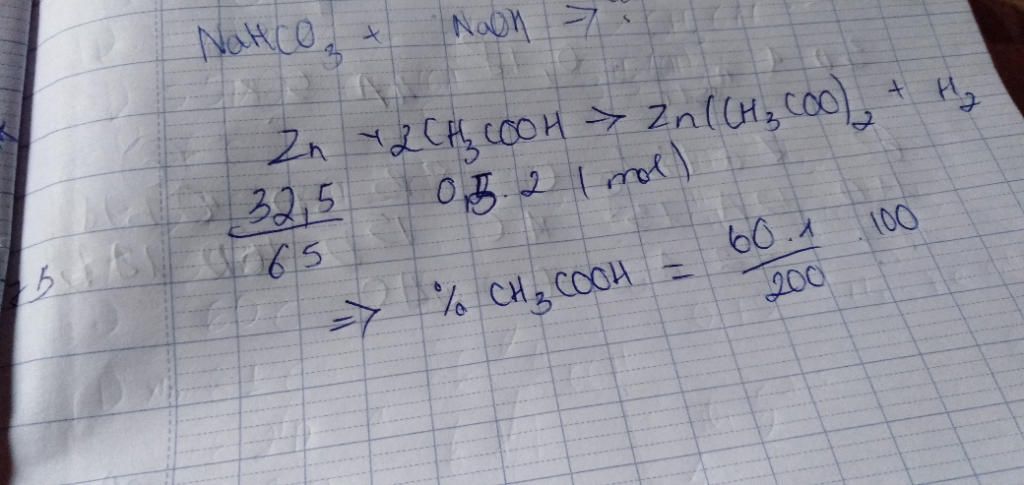 NaHCO₃ + NaOH ⇒
Zn + 2CH₃COOH → Zn(CH₃COO)₂ + H₂
32,5 0,5 . 2 (mol)
65
5
⇒ % CH₃COOH = 60 . 1 / 200 . 100